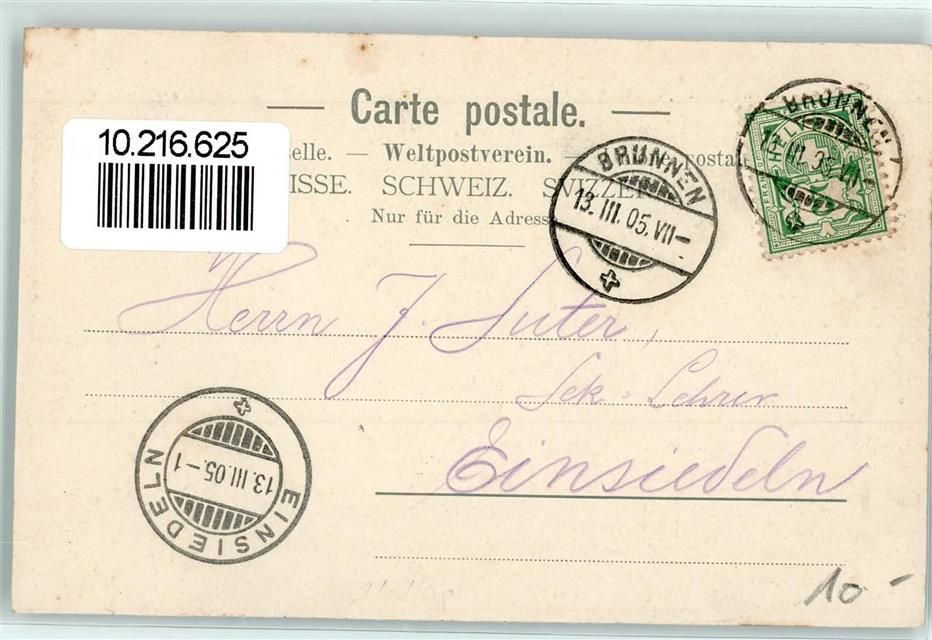 Carte postale.
10.216.625
selle. — Weltpostverein. — postali
ISSE. SCHWEIZ. SVIZZER
Nur für die Adress
BRUNNEN
13. III. 05. VII-
BRUNNEN
III. 05
HELV
Herrn J. Suter,
Sek. Lehrer
Einsiedeln
EINSIEDELN
13. III. 05.-1
10-